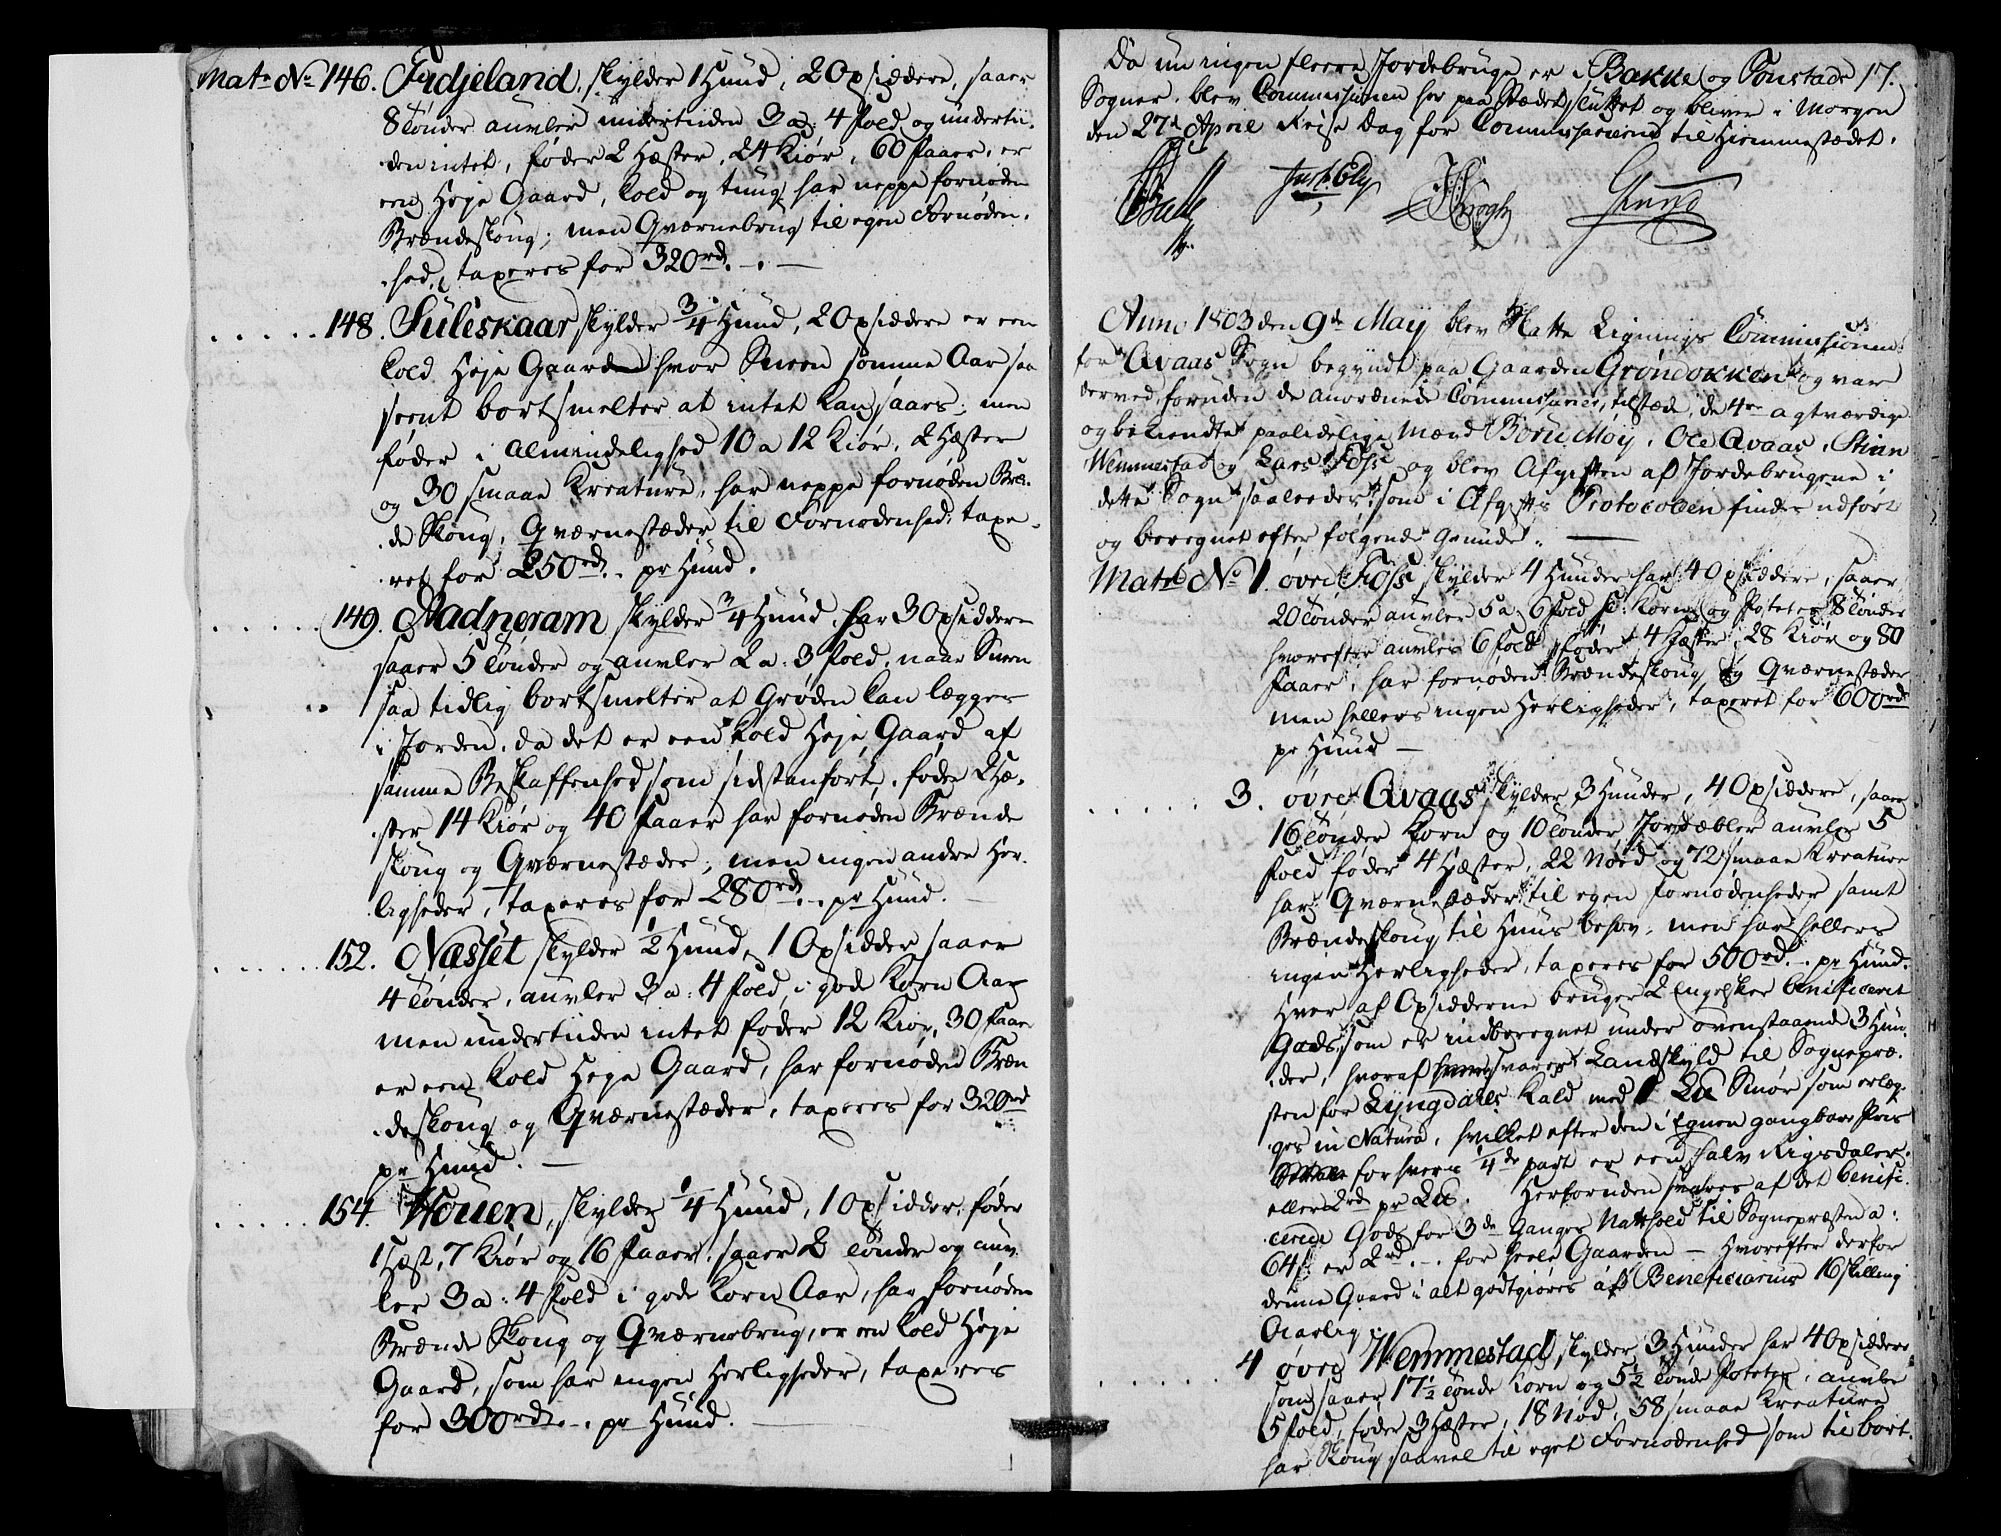 Matr No 146. Fidjeland, skylder 1 Hund, 2 Opsiddere, saaer
8 tønder auvler undertiden 3 a: 4 fold og underti-
den intet, føder 2 Hæster, 24 Kiør, 60 faaer, er
en Heje Gaard, kold og tung, har neppe fornøden
Brændeskoug; men Qværnebrug til egen Fornøden-
hed, taxeres for 320 rd. -. —
148. Suleskaar skylder 3/4 Hund, 2 Opsiddere er een
kold Heje Gaard hvor Sneen somme Aar saa
seent bortsmelter at intet kan saaes; men
føder i Almindelighed 10 a 12 Kiør, 2 Hæster
og 30 smaae Kreature, har neppe fornøden Bræn-
de Skoug, Qværnestæder til Fornødenhed: taxe-
ret for 250 rd. pr Hund.
149. Aadneram skylder 3/4 Hund, har 3 Opsiddere
saaer 5 tønder og auvler 2 a: 3 fold, naar Sneen
saa tidlig bortsmelter at Grøden kan lægges
i Jorden, da det er een kold Heje Gaard af
samme Beskaffenhed som sidstanført, føder 2 Hæ-
ster 14 Kiør og 40 faaer har fornøden Brænde
skoug og Qværnestæder, men ingen andre Her-
ligheder, taxeres for 280 rd. -. pr Hund.
152. Næsset skylder 1/2 Hund, 1 Opsidder saaer
4 tønder, auvler 3 a: 4 fold, i gode Korn Aar
men undertiden intet føder 12 Kiør, 30 faaer
er een kold Heje Gaard, har fornøden Bræn
deskoug og Qværnestæder, taxeres for 320 rd
pr Hund. —
154. Houen, skylder 1/4 Hund, 1 Opsidder, føder
1 Hæst, 7 Kiør og 16 faaer, saaer 2 tønder og auv-
ler 3 a: 4 fold i gode Korn Aar, har fornøden
Brænde Skoug og Qværnebrug, er en kold Heje
Gaard, som har ingen Herligheder, taxeres
for 300 rd. -. pr Hund. —
Da nu ingen fleere Jordebruge er i Bakke og Tonstads 17.
Sogner, blev Commissionen her paa Stædet sluttet og bliver i Morgen
den 27d April Reise Dag for Commissairerne til Hiemmestædet.
Anno 1803 den 9de May blev Matte Lignings Commissionen
for Qvaas Sogn begyndt paa Gaarden Grøndokken og var
derved, foruden de anordnede Commissairer, tilstæde, de 4re agtværdige
og bekiendte paalidelige Mænd Børu Møy, Ole Qvaas, Stian
Wemmestad og Lars Foss og blev Afgiften af Jordebrugene i
dette Sogn saaleedes som i Afgifts Protocollen findes udført
og beregnet efter følgende Grunde: —
Matr No 1. øvre Foss skylder 4 Hunder har 4 Opsiddere, saaer
20 tønder auvler 5 a 6 fold i Korn og Poteter 8 tønder
hvorefter auvles 6 fold føder 4 Hæster, 28 Kiør og 80
faaer, har fornøden Brændeskoug og Qværnestæder
men hellers ingen Herligheder, taxeret for 600 rd
pr Hund —
3. øvre Qvaas skylder 3 Hunder, 4 Opsiddere, saaer
16 tønder Korn og 10 tønder Jordæbler auvler 5
fold føder 4 Hæster, 22 Nød og 72 smaae Kreature
har Qværnestæder til egen fornødenheder samt
Brændeskoug til Huus behov, men har hellers
ingen Herligheder, taxeres for 500 rd. -. pr Hund.
Hver af Opsidderne bruger 2 Engelsker benificeret
Gods, som er indberegnet under ovenstaaende 3 Hun-
der, hvoraf svares Landskyld til Sognepræ-
sten for Lyngdals Kald med 1 Smør som erlæg-
ges in Natura, hvilket efter den i Egnen gangbare Priis
for hvers 1/4de part er een halv Rigsdaler.
eller 2 rd pr. Herforuden svares af det benifi-
cerede Gods for 3de Ganger Natthold til Sognepræsten a:
64 s er 2 rd. -. for heele Gaarden — Hvorefter derfor
denne Gaard i alt godtgiøres af Beneficiarius 16 skilling
Aarlig.
4 øvre Wemmestad skylder 3 Hunder har 4 Opsiddere
som saaer 17 1/2 tønde Korn og 5 1/2 tønde Poteter, auvler
5 fold, føder 3 Hæster, 18 Nød, 58 smaae Kreature
har Skoug saavel til eget Fornødenhed som til bort-